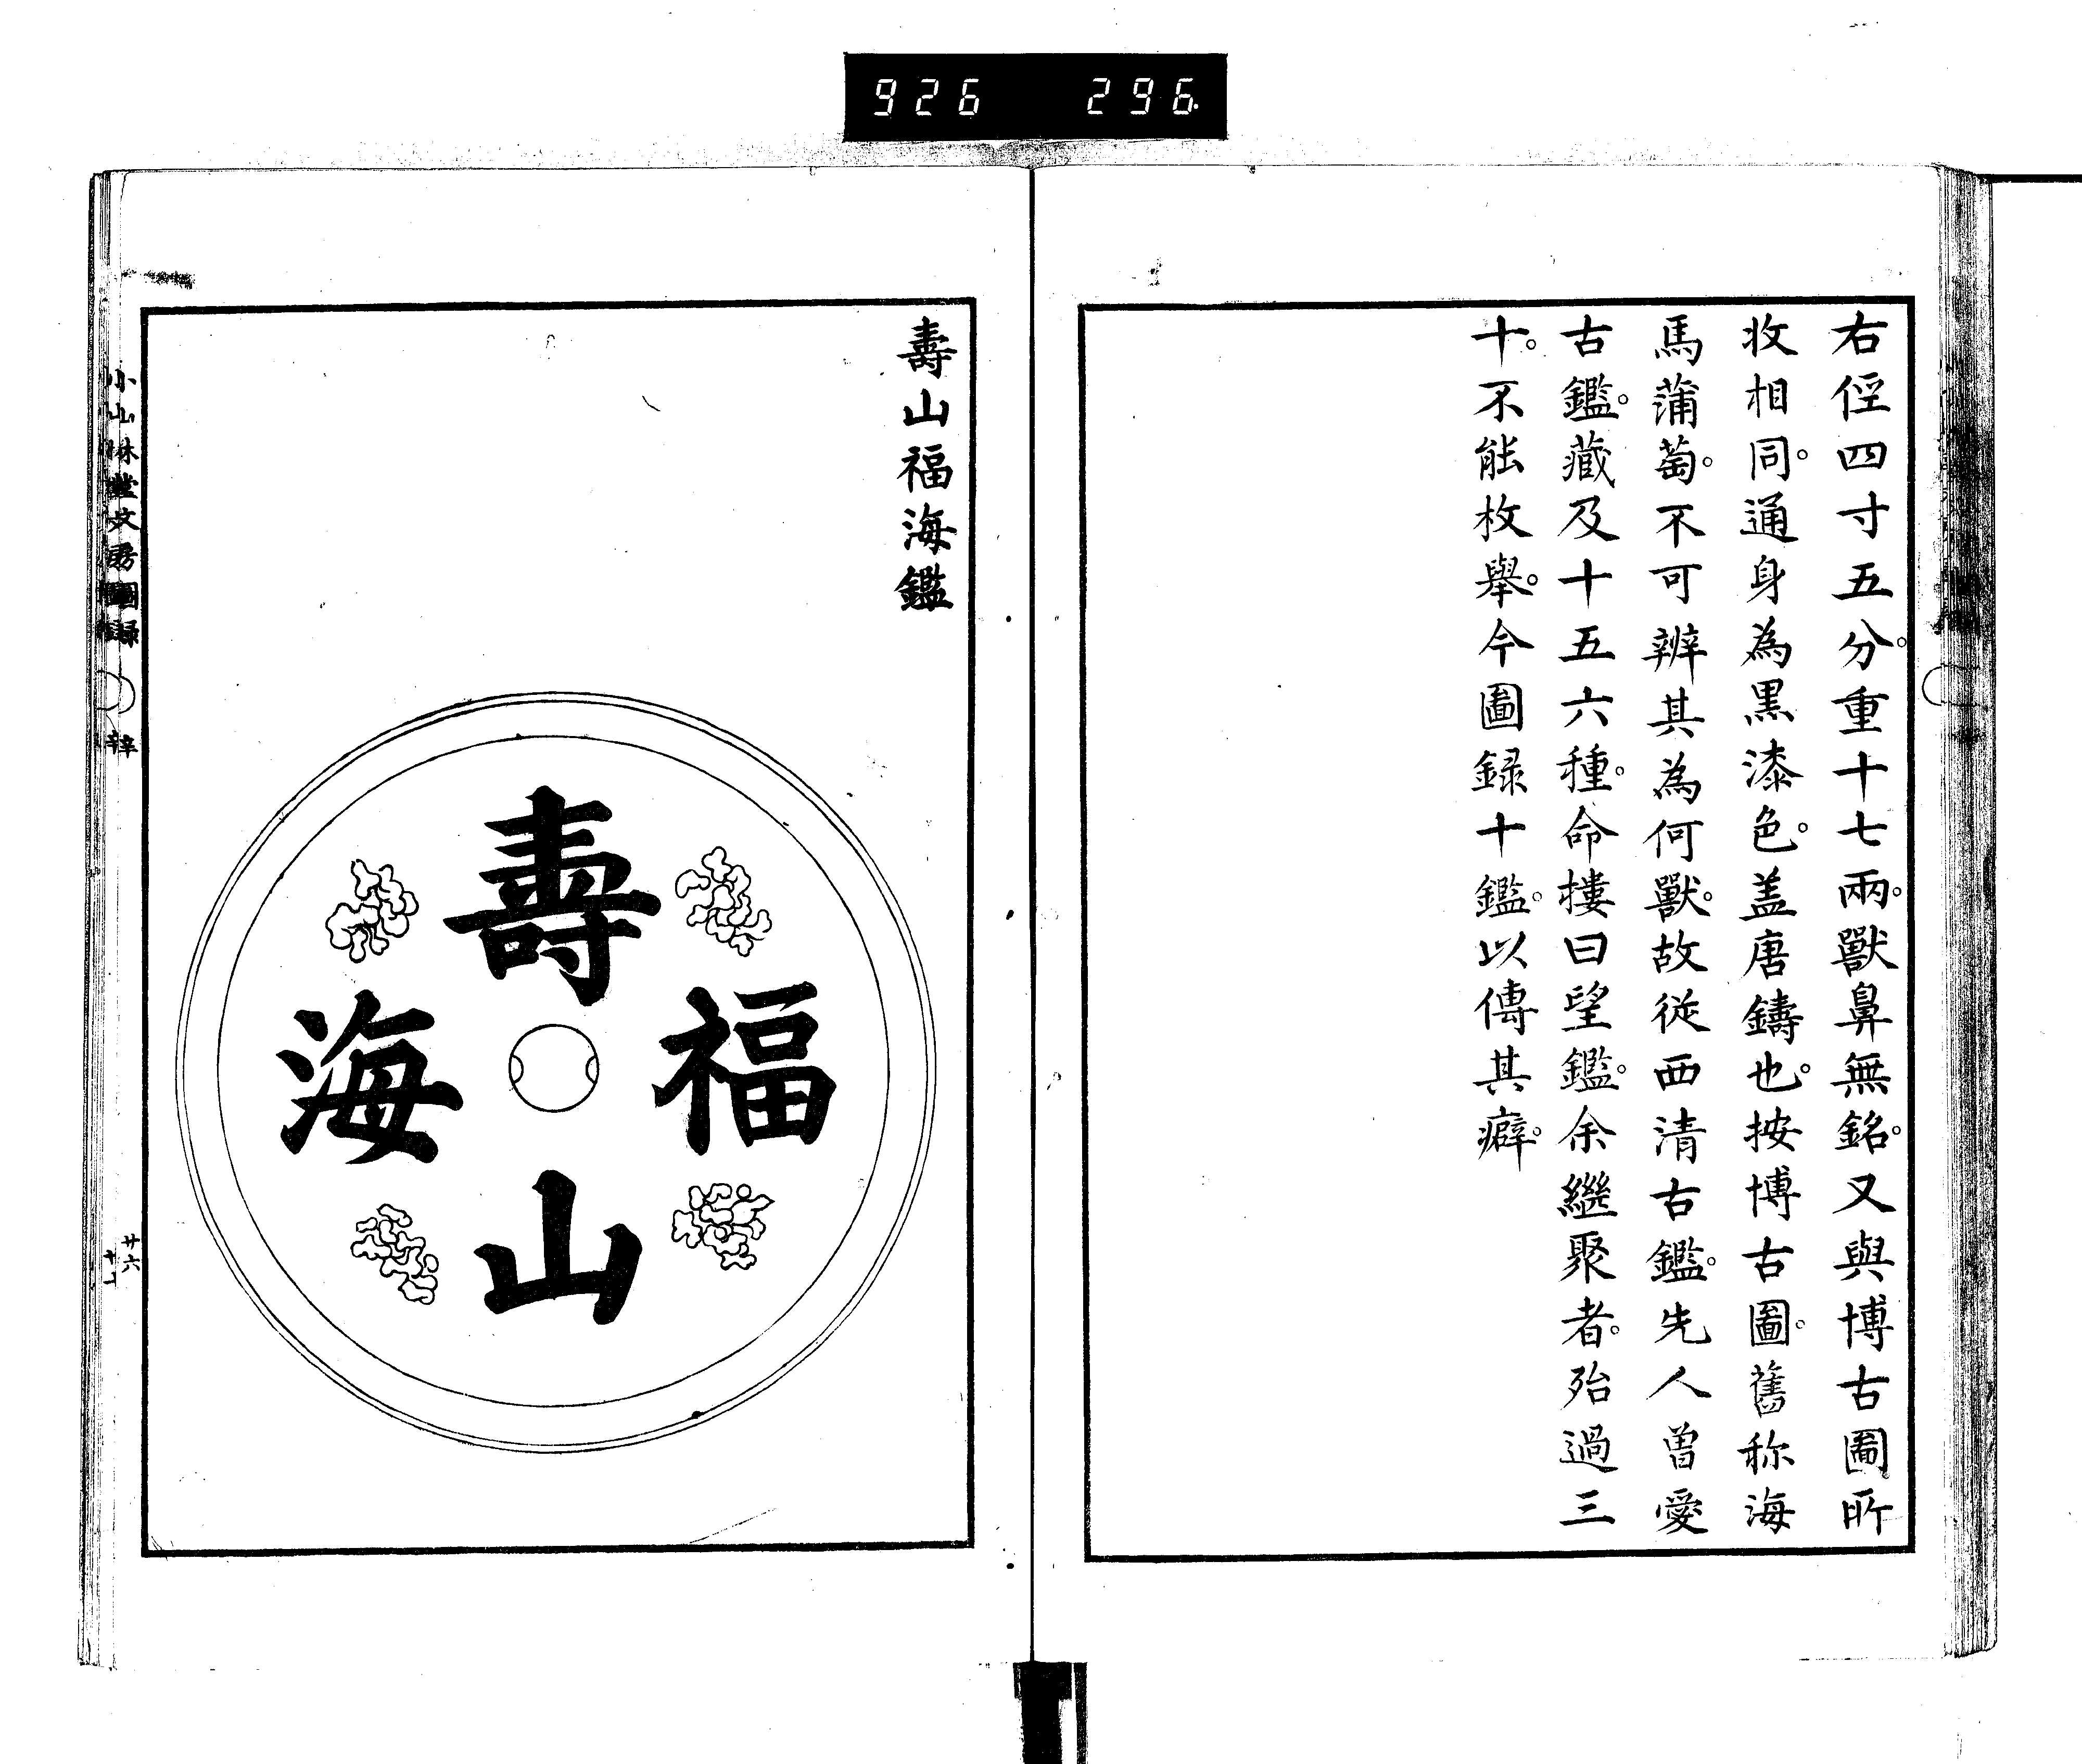 926 296
右徑四寸五分。重十七兩。獸鼻無銘。又與博古圖所
收相同。通身為黒漆色。盖唐鑄也。按博古圖。舊称海
馬蒲萄。不可辨其為何獸。故從西清古鑑。先人曽愛
古鑑。藏及十五六種。命樓曰望鑑。余繼聚者。殆過三
十。不能枚舉。今圖録十鑑。以傳其癖。
壽山福海鑑
壽
福
海
山
小山林堂文房圖録
辛
廿六